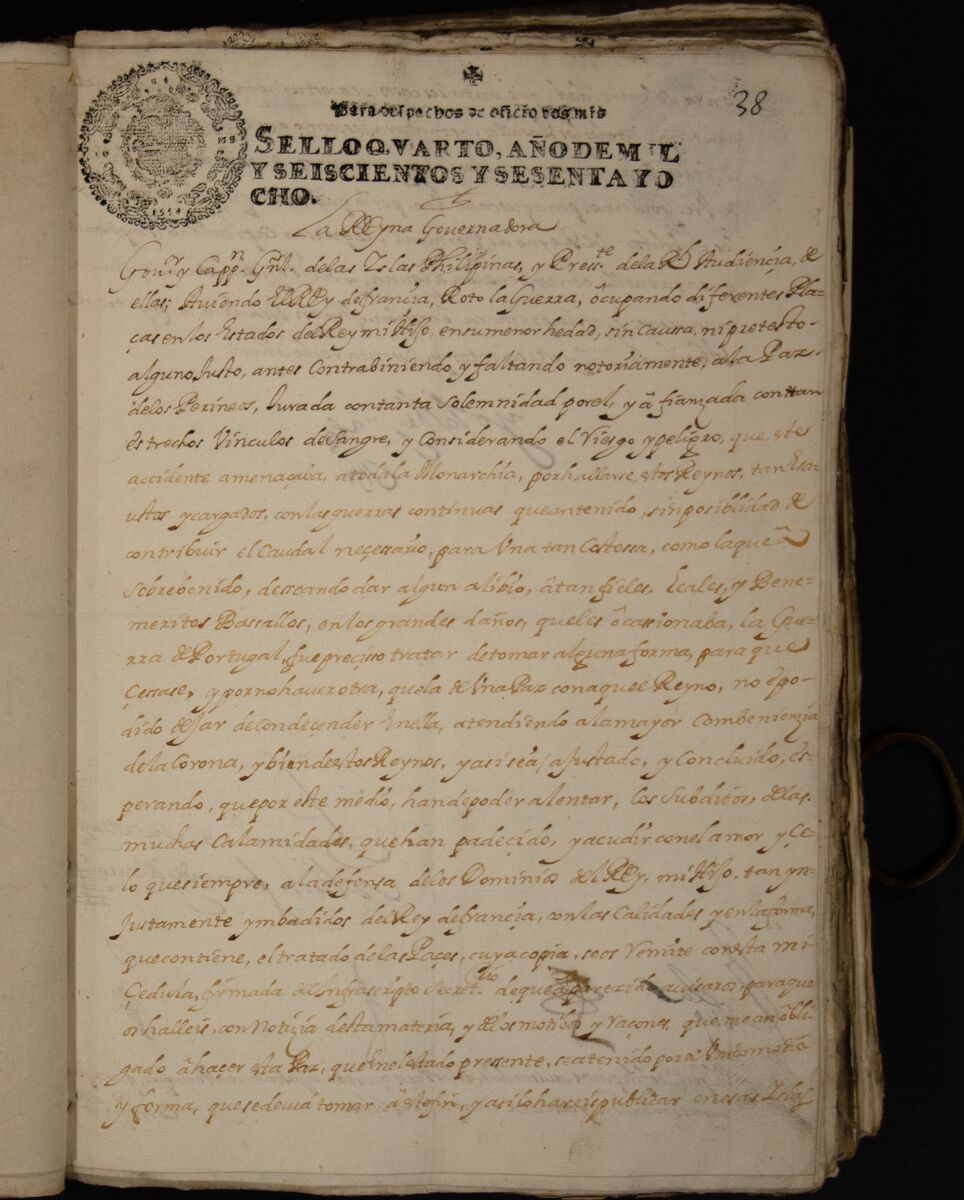 38
Para despachos de oficio dos mrs
SELLO QVARTO, AÑO DE MIL
Y SEISCIENTOS Y SESENTA Y O
CHO.
La Reyna Governadora
Gouor. y Cappn. Gnl. de las Islas Philipinas, y Presste. de la Rl Audiençia, de
ellas; Auiendo El Rey de françia, Roto la Guerra, ôcupando diferentes Pla-
ças en los Estados del Rey mi Hijo, en su menor hedad, sin Caussa, ni pretesto-
alguno Justo, antes Contrabiniendo y faltando notoriamente, a la Paz
de los Perineos, Jurada con tanta Solemnidad por el, y â fianzada con ttan
estrechos Vinculos de Sangre, y Considerando el Riesgo y peligro, que, este
accidente amenaçaba, a toda la Monarchia, por hallarse, estos Reynos, tan Exa-
ustos y cargados, con las guerras continuas que an tenido, sin posiblidad de
contribuir el Caudal neçessario, para Vna tan Costossa, como la que â
Sobrebenido, desseando dar algun alibio, â tan fieles, Leales, y Bene-
meritos Bassallos, en los grandes daños, que les ôcassionaba, la Gue-
rra de Portugal, fue preçisso tratar de tomar alguna forma, para que
Çessase, y por no haver otra, que la de Vna Paz con aquel Reyno, no è po-
dido dejar de Condeçender En ella, atendiendo a la mayor Combenienzia
de la Corona, y bien de estos Reynos, y asi se â ajustado, y Concluido, es-
perando, que por este medio, han de poder alentar, los Subditos, de las
muchas Calamidades, que han padecido, y acudir con el amor y Çe-
lo que siempre, a la defensa de los Dominios del Rey, mi Hijo, tan yn-
Justamente ymbadidos del Rey de françia, con las Calidades y en la forma,
que contiene, el tratado de las Paçes, cuya copia, se os Remite con esta mi
Çedula, firmada de Infrascripto Secretrio. de que a parezido auisaros, para que
os halleis, con Notizia de esta materia, y de los motibos y Raçones, que me an ôbli-
gado â haçer esta Paz, que en el estado presente, se a tenido por el Vnico medio
y forma, que se deuia tomar â este fin, y asi lo hareis publicar en esas Islas